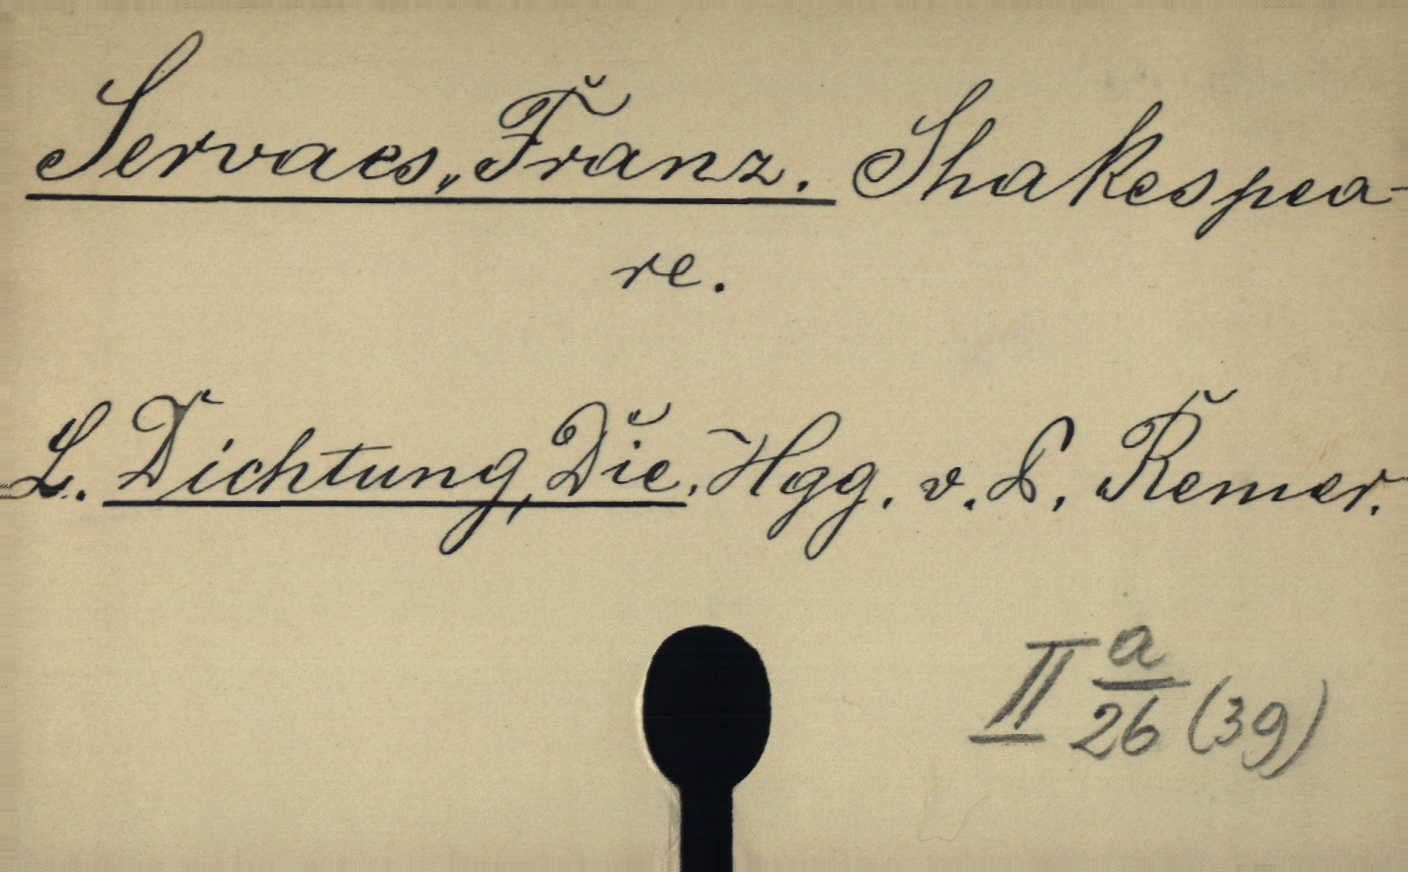 Servaes, Franz. Shakespea-
re.
L. Dichtung, Die. Hgg. v. P. Remer.
II a/26 (39)